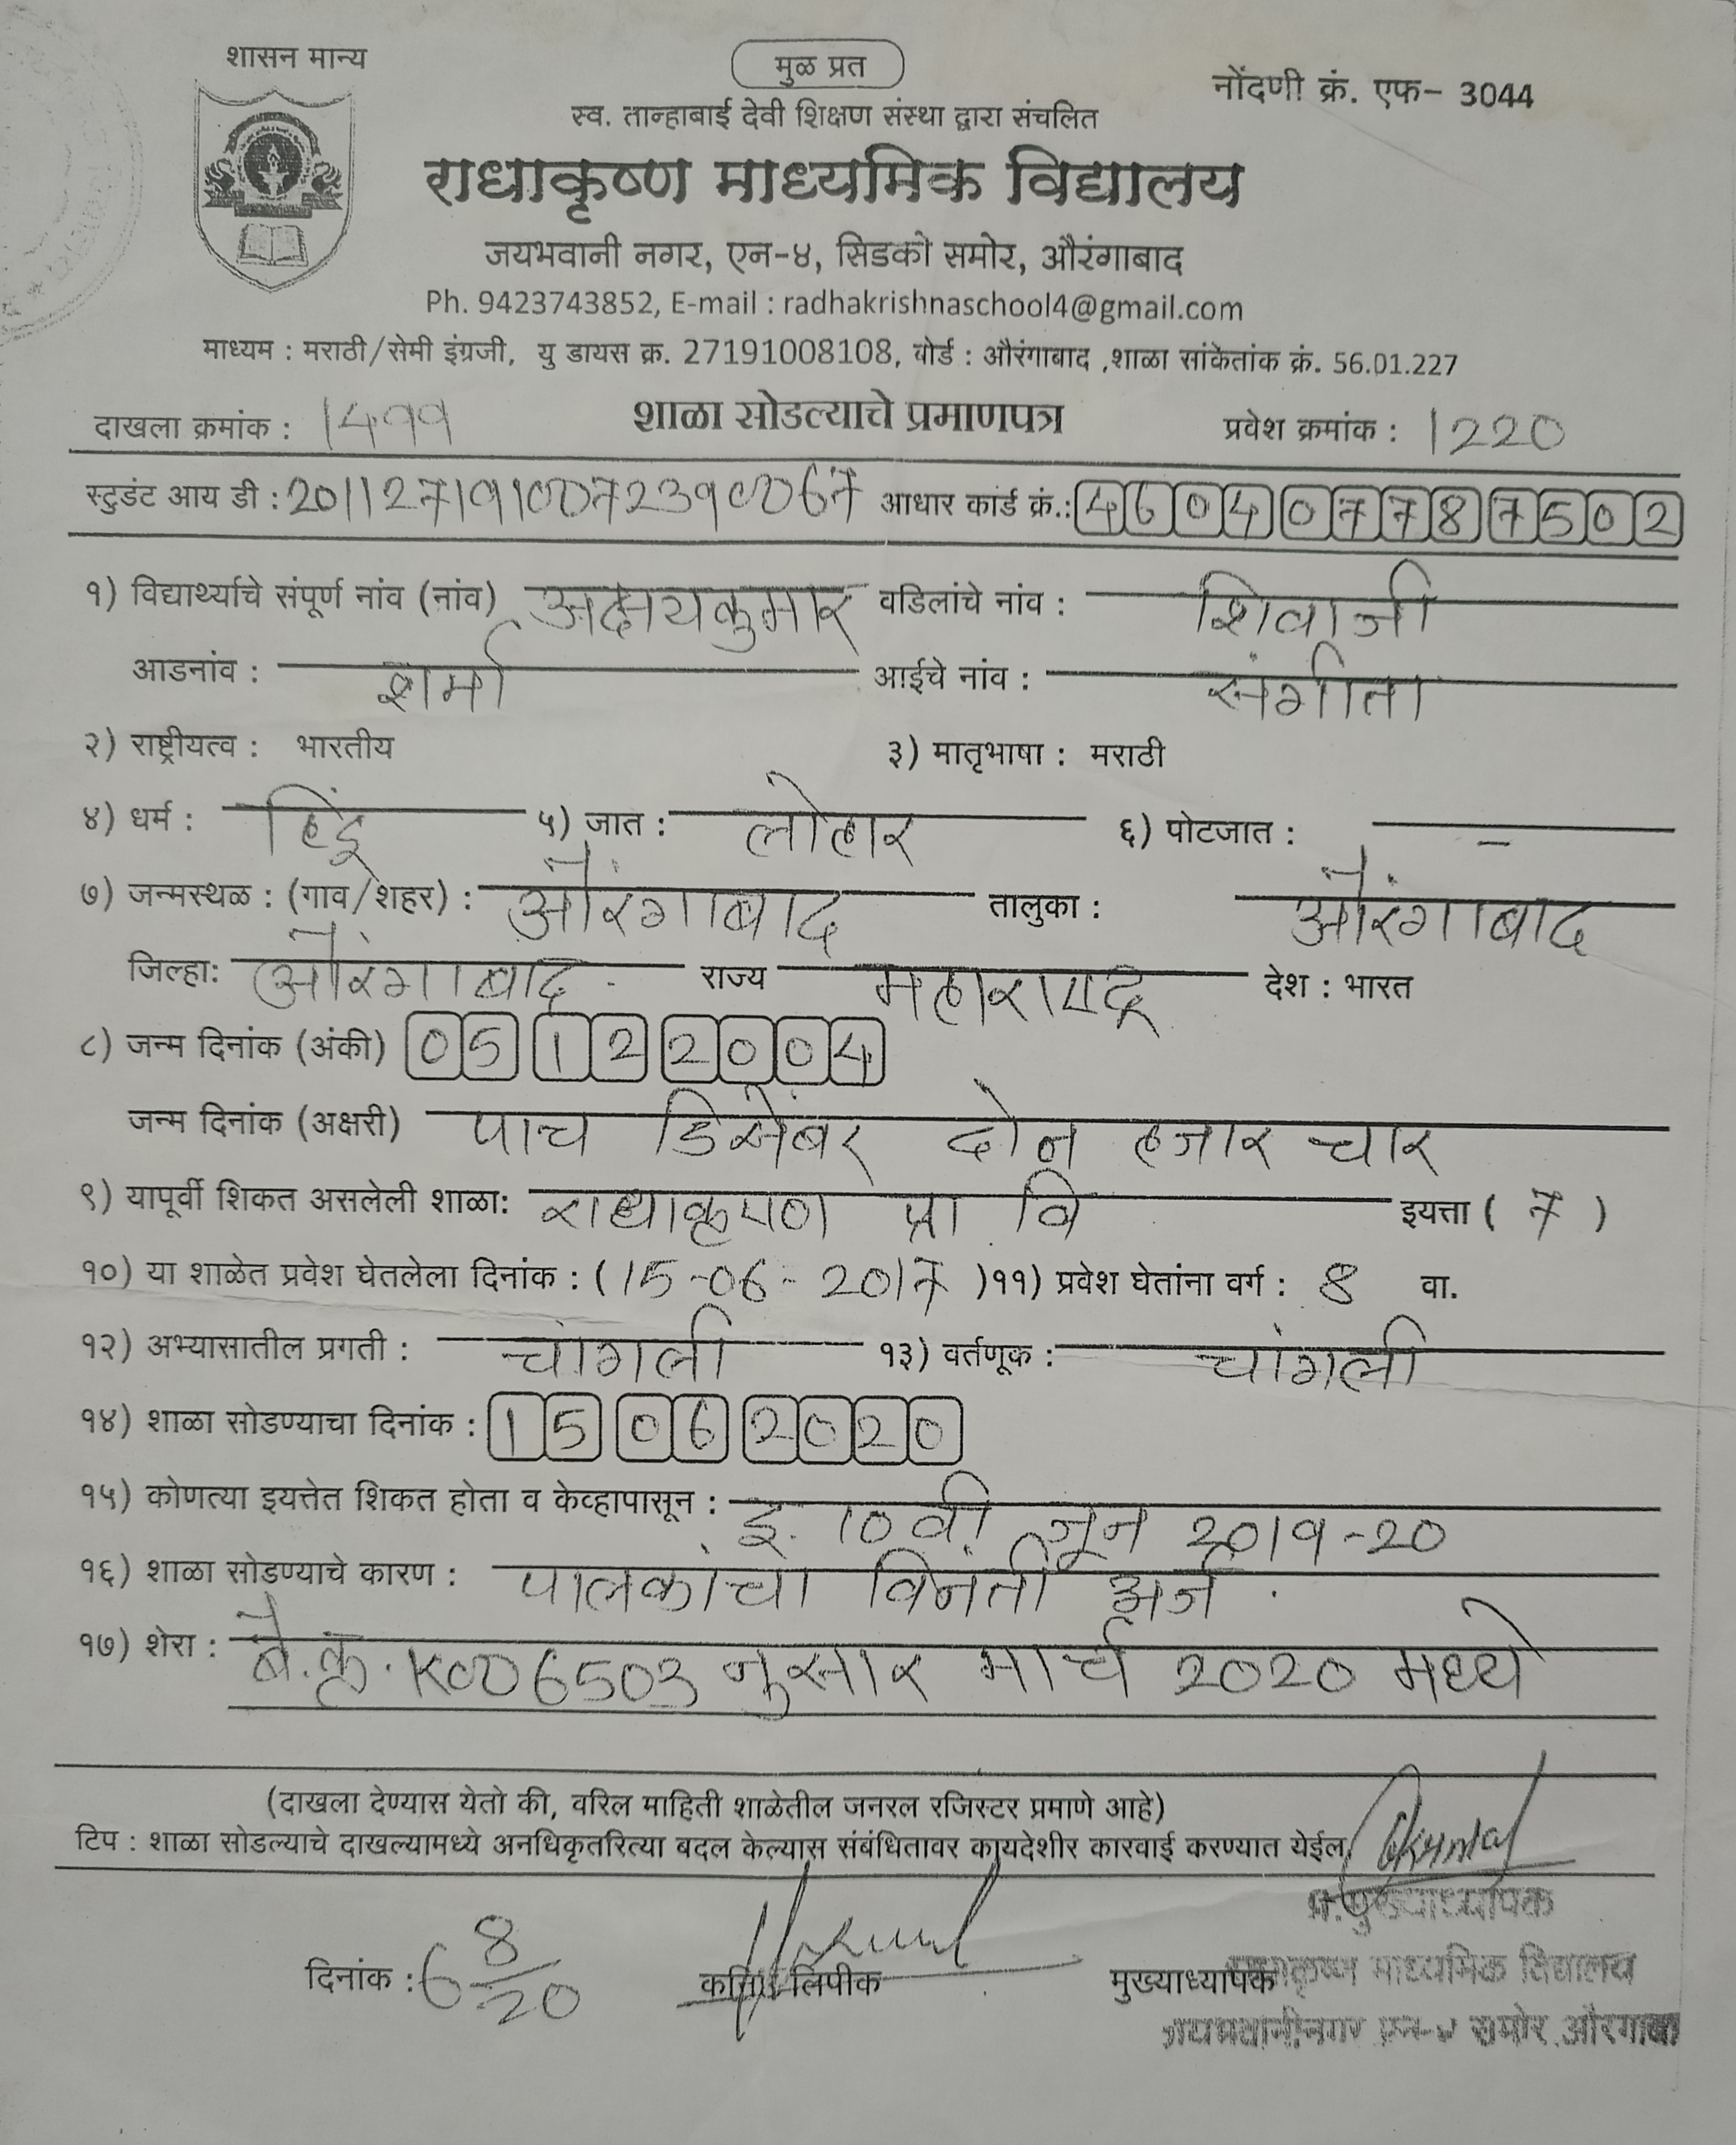 शासन मान्य
मुळ प्रत
नोंदणी क्रं. एफ- 3044
स्व. तान्हाबाई देवी शिक्षण संस्था द्वारा संचलित
राधाकृष्ण माध्यमिक विद्यालय
जयभवानी नगर, एन-४, सिडको समोर, औरंगाबाद
Ph. 9423743852, E-mail : radhakrishnaschool4@gmail.com
माध्यम : मराठी/सेमी इंग्रजी, यु डायस क्र. 27191008108, बोर्ड : औरंगाबाद ,शाळा सांकेतांक क्रं. 56.01.227
दाखला क्रमांक : 1499 शाळा सोडल्याचे प्रमाणपत्र प्रवेश क्रमांक : 1220
स्टुडंट आय डी : 2011271910072390067 आधार कार्ड क्रं.: 460407787502
१) विद्यार्थ्याचे संपूर्ण नांव (नांव) अक्षयकुमार वडिलांचे नांव : शिवाजी
आडनांव : शर्मा आईचे नांव : संगीता
२) राष्ट्रीयत्व : भारतीय ३) मातृभाषा : मराठी
४) धर्म : हिंदू ५) जात : लोहार ६) पोटजात : –
७) जन्मस्थळ : (गाव/शहर) : औरंगाबाद तालुका : औरंगाबाद
जिल्हा: औरंगाबाद राज्य महाराष्ट्र देश : भारत
८) जन्म दिनांक (अंकी) 05 12 2004
जन्म दिनांक (अक्षरी) पाच डिसेंबर दोन हजार चार
९) यापूर्वी शिकत असलेली शाळा: राधाकृष्ण प्रा वि इयत्ता ( 7 )
१०) या शाळेत प्रवेश घेतलेला दिनांक : (15-06-2017 )११) प्रवेश घेतांना वर्ग : 8 वा.
१२) अभ्यासातील प्रगती : चांगली १३) वर्तणूक : चांगली
१४) शाळा सोडण्याचा दिनांक : 15 06 2020
१५) कोणत्या इयत्तेत शिकत होता व केव्हापासून : इ. 10 वी जून 2019-20
१६) शाळा सोडण्याचे कारण : पालकांचा विनंती अर्ज .
१७) शेरा : बै.क्र. K006503 नुसार मार्च 2020 मध्ये
(दाखला देण्यास येतो की, वरिल माहिती शाळेतील जनरल रजिस्टर प्रमाणे आहे)
टिप : शाळा सोडल्याचे दाखल्यामध्ये अनधिकृतरित्या बदल केल्यास संबंधितावर कायदेशीर कारवाई करण्यात येईल
प्र.मुख्याध्यापक
दिनांक : 6/8/20 कनिष्ठ लिपीक मुख्याध्यापक
राधाकृष्ण माध्यमिक विद्यालय
जयभवानीनगर एन-४ समोर औरंगाबाद